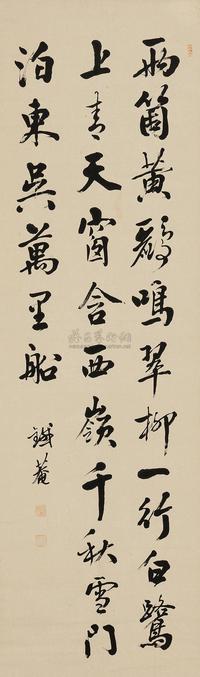 兩箇黃鸝鳴翠柳一行白鷺
上青天窗含西嶺千秋雪門
泊東吳萬里船
鐵菴